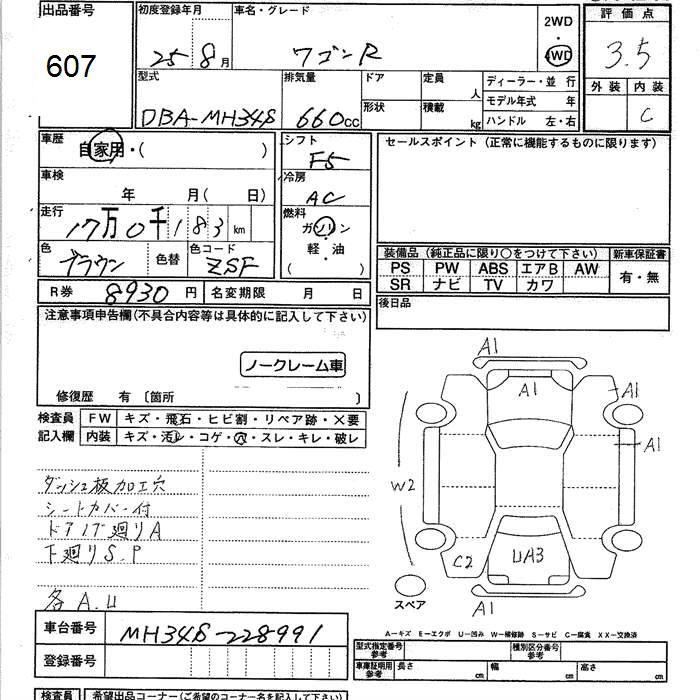 出品番号
607
初度登録年月
25年8月
車名・グレード
ワゴンR
2WD
・
4WD
評価点
3.5
外装 内装
C
型式
DBA-MH34S
排気量
660cc
ドア
形状
定員
人
積載
kg
ディーラー・並行
モデル年式 年
ハンドル 左・右
車歴
自家用・( )
シフト
F5
車検
年 月( 日)
冷房
AC
走行
17万0千183km
燃料
ガソリン
・
軽・油
( )
色
ブラウン
色替
色コード
ZSF
セールスポイント (正常に機能するものに限ります)
装備品 (純正品に限り○をつけて下さい)
新車保証書
PS PW ABS エアB AW
SR ナビ TV カワ
有・無
R券 8930円
名変期限 月 日
後日品
注意事項申告欄(不具合内容等は具体的に記入して下さい)
ノークレーム車
修復歴 有 〔箇所 〕
検査員
記入欄
FW キズ・飛石・ヒビ割・リペア跡・×要
内装 キズ・汚レ・コゲ・穴・スレ・キレ・破レ
ダッシュ板加工穴
シートカバー付
ドアノブ廻りA
下廻りS.P
各A.U
A1
A1
A1
A1
W2
C2
UA3
A1
スペア
A-キズ E-エクボ U-凹み W-補修跡 S-サビ C-腐食 XX-交換済
車台番号
MH34S-228991
登録番号
型式指定番号
参考
種別区分番号
参考
車庫証明用
参考
長さ cm 幅 cm 高さ cm
検査員
希望出品コーナー(ご希望のコーナー名を記入して下さい)